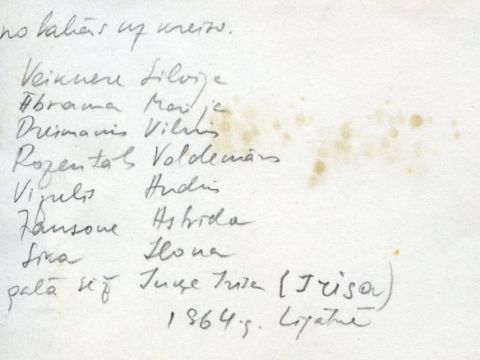 no labās uz kreiso.
Veiknere Silvija
Ābrama Marija
Dreimanis Vilnis
Rozentāls Valdemārs
Vizulis Andris
Jansone Astrida
Sīka Ilona
galā sēž Inese Irisa (Irisa)
1964.g. Līgatnē